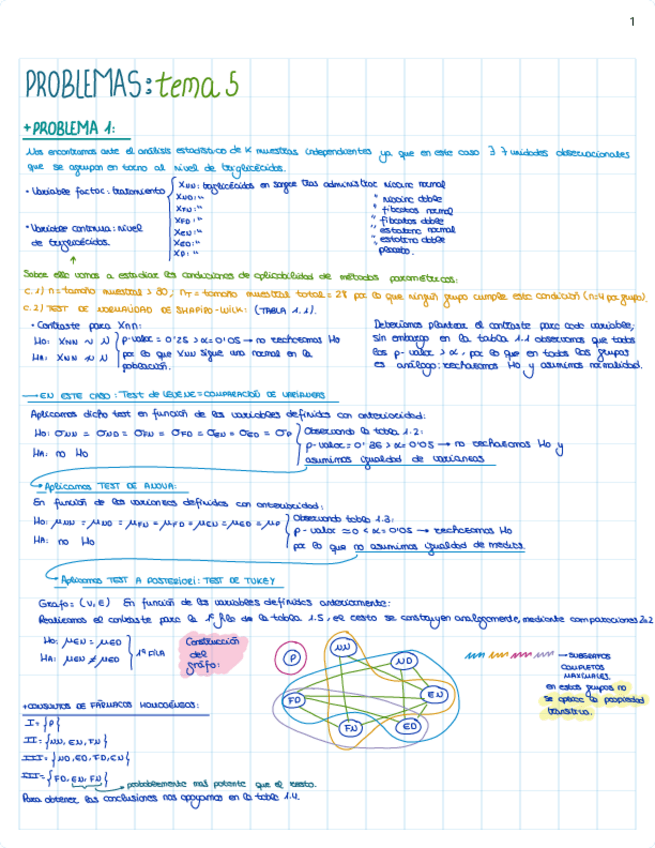 1
PROBLEMAS: tema 5
+PROBLEMA 1:
Nos encontramos ante el análisis estadístico de K muestras independientes ya que en este caso ∃ 7 unidades observacionales
que se agrupan en torno al nivel de triglicéridos.
• Variable factor: tratamiento
XNN: triglicéridos en sangre tras administrar niacina normal
XND: " " niacina doble
XFN: " " fibratos normal
XFD: " " fibratos doble
XEN: " " estatina normal
XED: " " estatina doble
XP: " placebo.
• Variable continua: nivel
de triglicéridos.
Sobre ella vamos a estudiar las condiciones de aplicabilidad de métodos paramétricos:
C.1) n = tamaño muestral > 30; nT = tamaño muestral total = 28 por lo que ningún grupo cumple esta condición (n=4 por grupo).
C.2) TEST DE NORMALIDAD DE SHAPIRO-WILK: (TABLA 1.1).
• Contraste para Xnn:
Ho: XNN ~ N
HA: XNN ≁ N
p-valor = 0'25 > α = 0'05 → no rechazamos Ho
por lo que XNN sigue una normal en la
población.
Deberíamos plantear el contraste para cada variable,
sin embargo en la tabla 1.1 observamos que todos
los p-valor > α, por lo que en todos los grupos
es análogo: rechazamos Ho y asumimos normalidad.
→ EN ESTE CASO: Test de LEVENE = COMPARACIÓN DE VARIANZAS
Aplicamos dicho test en función de las variables definidas con anterioridad:
Ho: σNN = σND = σFN = σFD = σEN = σED = σP
HA: no Ho
Observando la tabla 1.2:
p-valor = 0'86 > α = 0'05 → no rechazamos Ho y
asumimos igualdad de varianzas
Aplicamos TEST DE ANOVA:
En función de las variables definidas con anterioridad:
Ho: μNN = μND = μFN = μFD = μEN = μED = μP
HA: no Ho
Observando tabla 1.3:
p-valor ≈ 0 < α = 0'05 → rechazamos Ho
por lo que no asumimos igualdad de medias.
Aplicamos TEST A POSTERIORI: TEST DE TUKEY
Grafo = (V, E) En función de las variables definidas anteriormente:
Realizamos el contraste para la 1ª fila de la tabla 1.5, el resto se construyen análogamente, mediante comparaciones 2a2
Ho: μEN = μED
HA: μEN ≠ μED
1ª FILA
Construcción
del
grafo:
P
NN
ND
EN
ED
FN
FD
→ SUBGRAFOS
COMPLETOS
MAXIMALES.
en estos grupos no
se aplica la propiedad
transitiva.
+CONJUNTOS DE FÁRMACOS HOMOGÉNEOS:
I = {P}
II = {NN, EN, FN}
III = {ND, ED, FD, EN}
III = {FD, EN, FN}
→ probablemente más potente que el resto.
Para obtener las conclusiones nos apoyamos en la tabla 1.4.